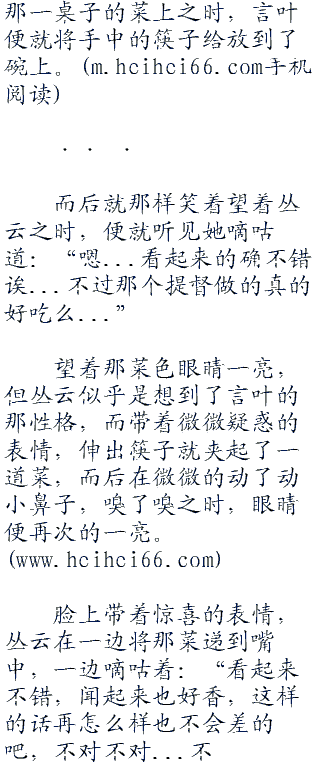 那一桌子的菜上之时，言叶
便就将手中的筷子给放到了
碗上。(m.hcihci66.com手机
阅读)
. . .
而后就那样笑着望着丛
云之时，便就听见她嘀咕
道：“嗯...看起来的确不错
诶...不过那个提督做的真的
好吃么...”
望着那菜色眼睛一亮，
但丛云似乎是想到了言叶的
那性格，而带着微微疑惑的
表情，伸出筷子就夹起了一
道菜，而后在微微的动了动
小鼻子，嗅了嗅之时，眼睛
便再次的一亮。
(www.hcihci66.com)
脸上带着惊喜的表情，
丛云在一边将那菜递到嘴
中，一边嘀咕着：“看起来
不错，闻起来也好香，这样
的话再怎么样也不会差的
吧，不对不对...不